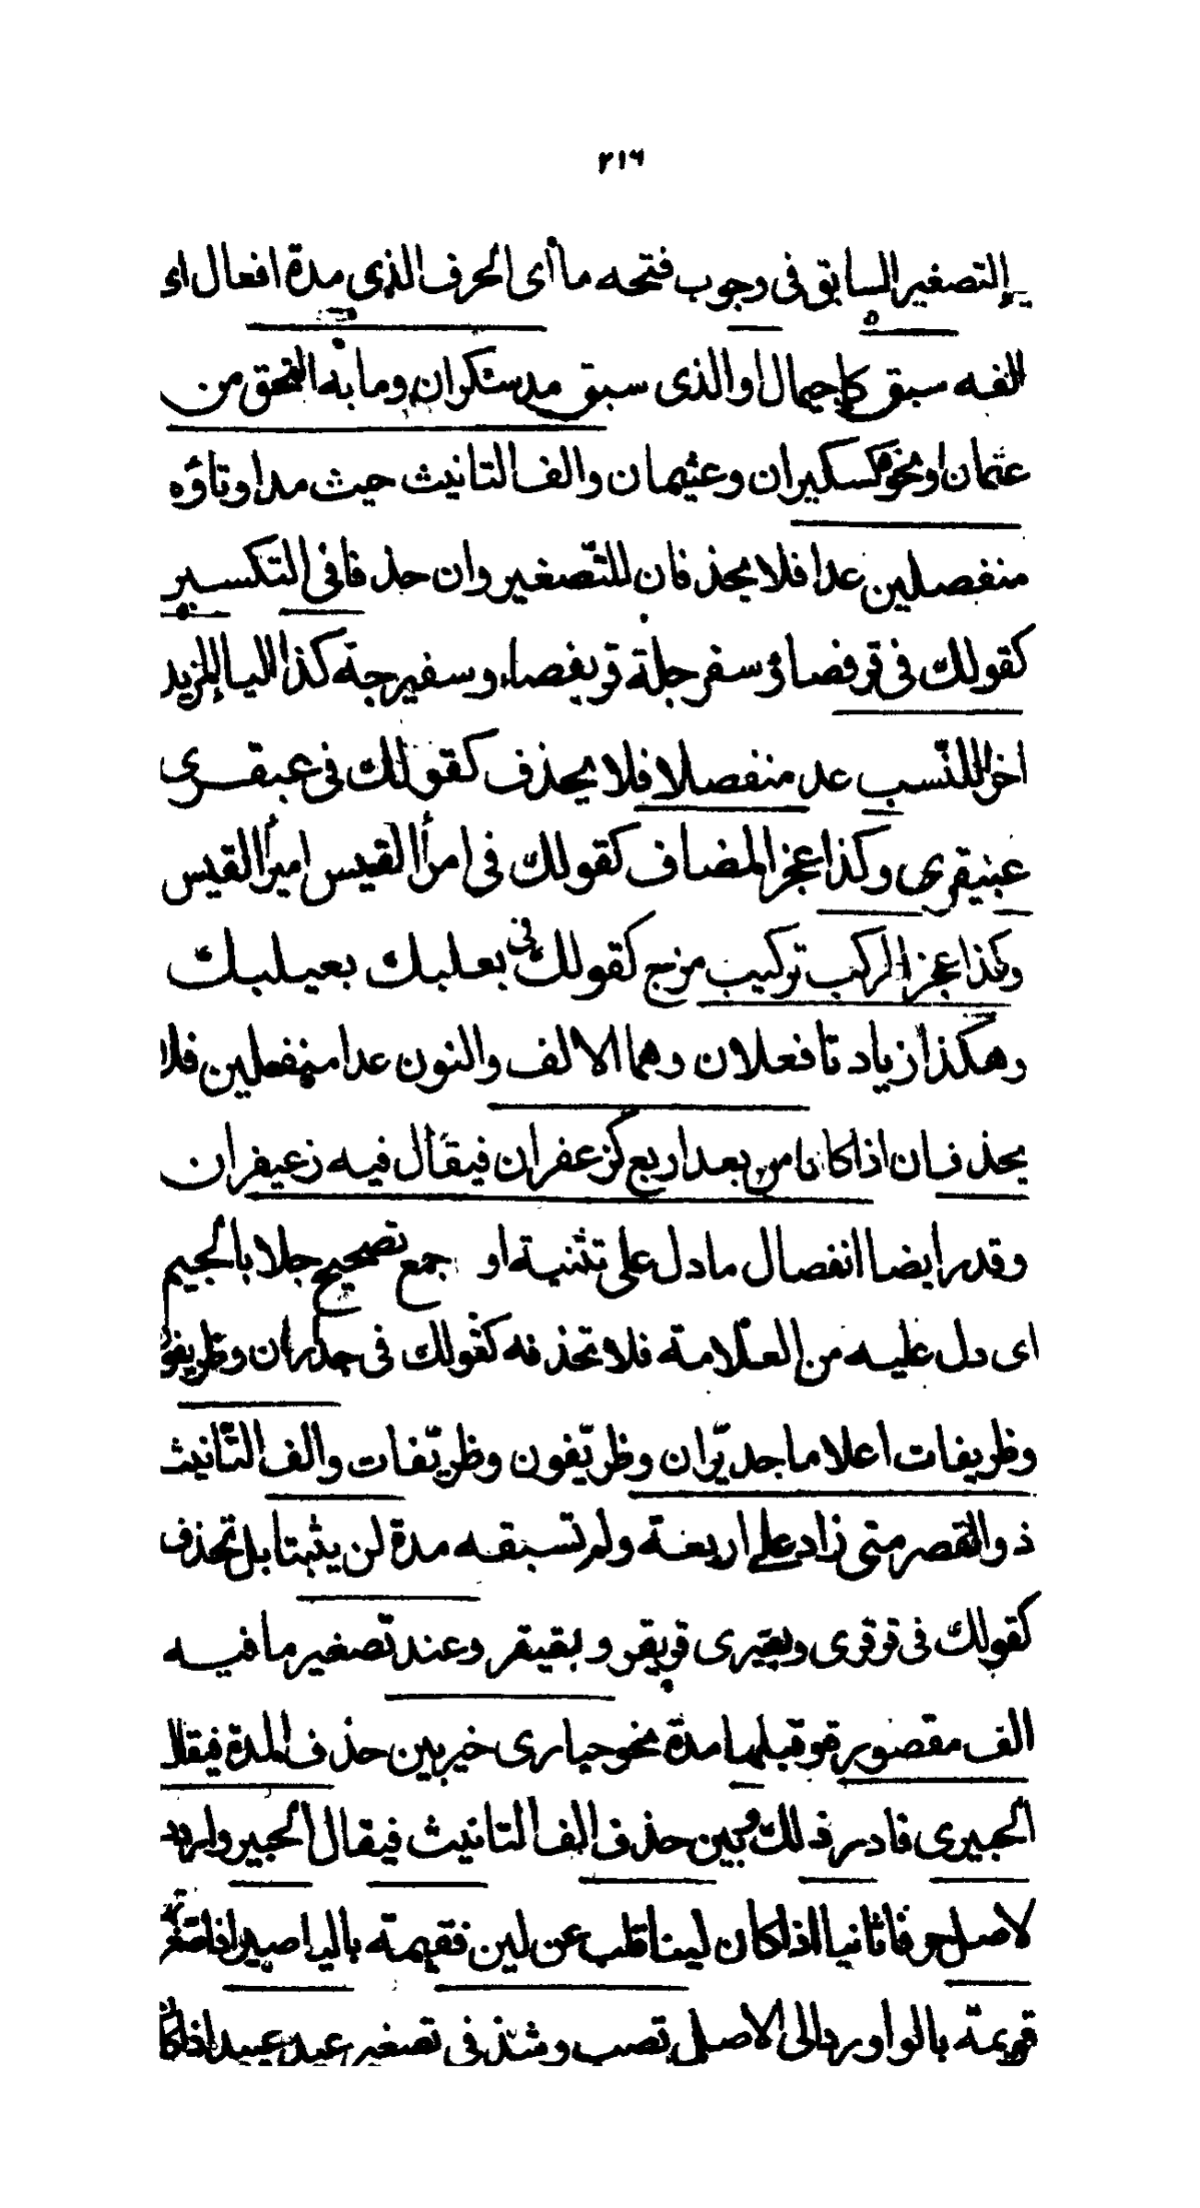 ٢١٦
التصغير السابق فى وجوب فتحه ما أى الحرف الذى مدة افعال اى
الفه سبق كاجيمال او الذى سبق مد سكران وما به التحق من
عثمان ونحوه كسكيران وعثيمان والف التانيث حيث مدا وتاؤه
منفصلين عدا فلا يحذفان للتّصغير وان حذفا فى التكسير
كقولك فى قرفصاؤ سفرجلة قريفصاء وسفيرجة كذا اليا المزيد
اخرا للنّسب عد منفصلا فلا يحذف كقولك فى عبقرى
عبنيقرى وكذا عجز المضاف كقولك فى امرأ القيس اميرأ القيس
وكذا عجز المركب تركيب مزج كقولك فى بعلبك بعيلبك
وهكذا زيادتا فعلان وهما الالف والنون عدا منفصلين فلا
يحذفان اذا كانا من بعد اربع كزعفران فيقال فيه زعيفران
وقدر ايضا انفصال ما دل على تثنية او جمع تصحيح جلا بالجيم
اى دل عليه من العلامة فلا تحذفه كقولك فى جداران وظريفو
وظريفات اعلاما جديّران وظريّفون وظريّفات والف التّانيث
ذو القصر متى زاد على اربعة ولم تسبقه مدة لن يثبتا بل تحذف
كقولك فى قرقرى وبقيرى قريقر وبقيقر وعند تصغير ما فيه
الف مقصورة وقبلها مدة نحو حبارى خير بين حذف المدة فيقال
الحبيرى فادر ذلك وبين حذف الف التانيث فيقال الحبير واردد
لاصل حرفا ثانيا اذا كان لينا قلب عن لين فقيمة باليا صير اذا تصغر
قويمة بالواو ردا الى الاصل تصب وشذ فى تصغير عيد عييد اذا كا